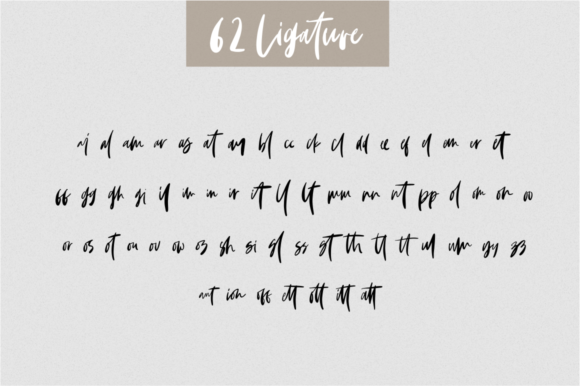 62 Ligature
aj al am ar as at ay bl cc ck cl dd ee ef el em er et
ff gg gh gi il im in ir it ll lt mm nn nt pp ol om on oo
or os ot ou ov ow oz sh si sl ss st th tl tt ul um yy zz
ant ion off ett ott itt att